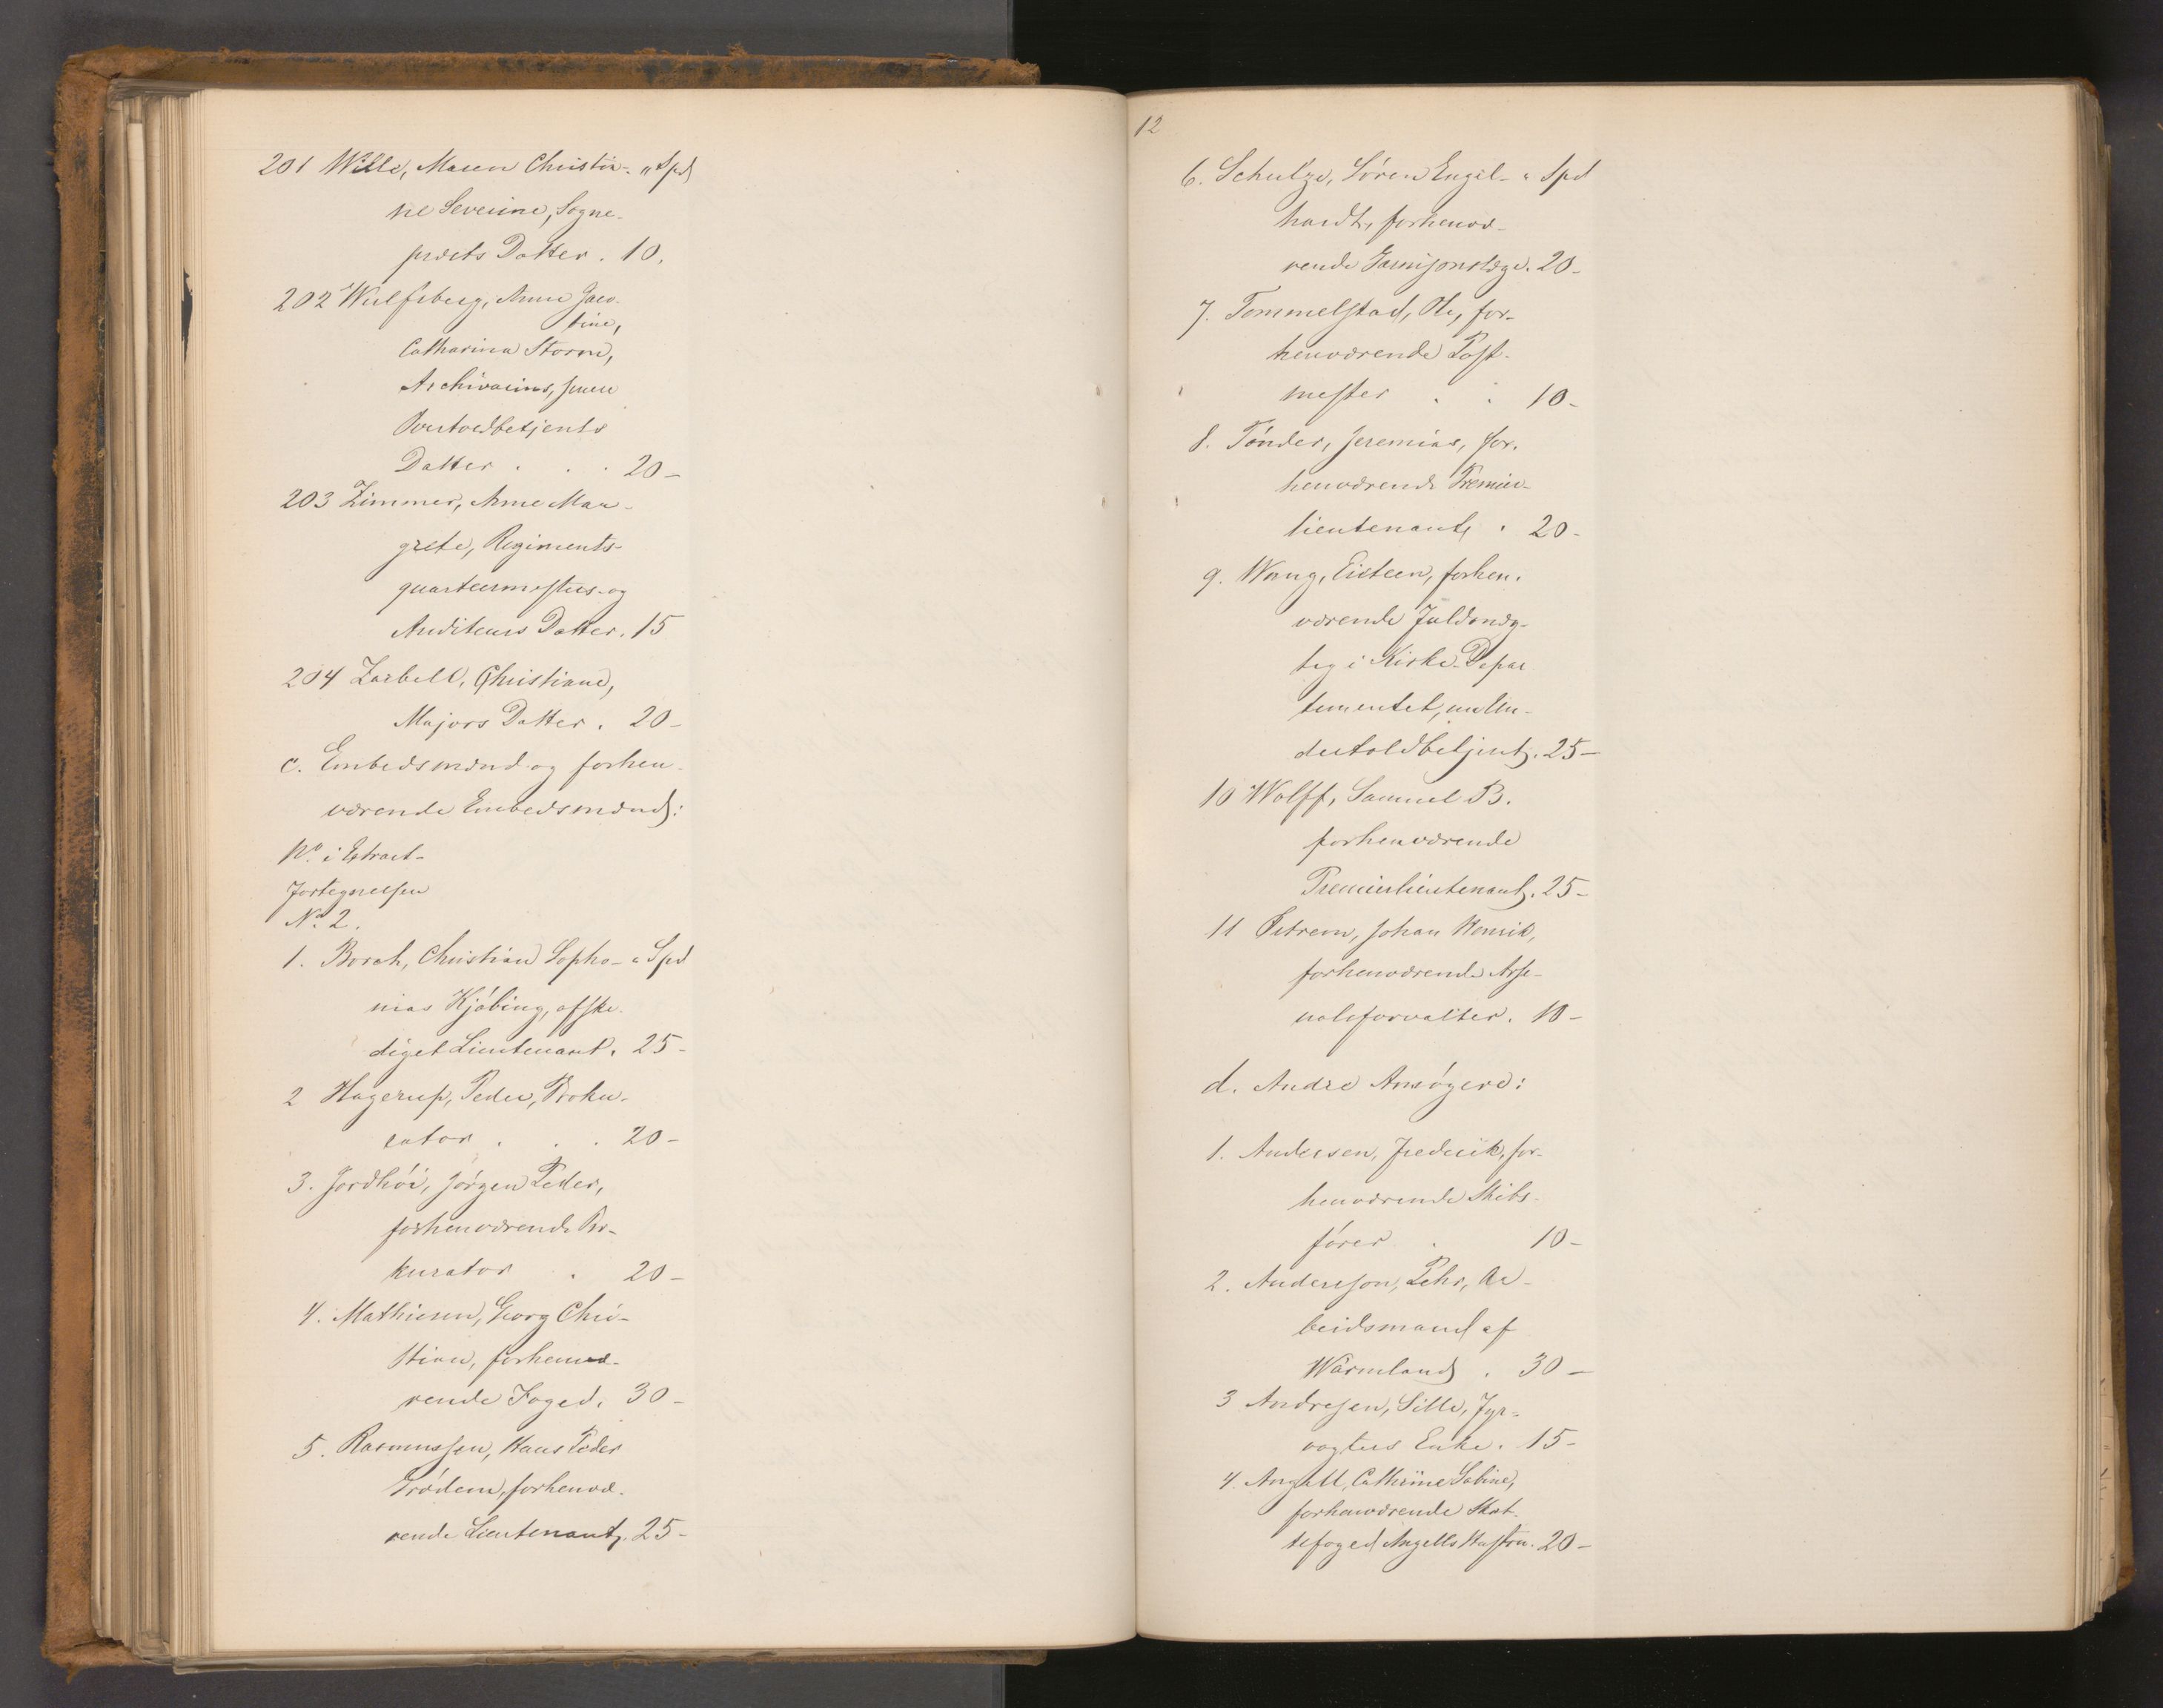 201 Wille, Maren Christia- " Spd
ne Severine, Sogne-
præsts Datter . 10.
202 Wulfsberg, Anne Jaco-
bine,
Catharina Storm,
Archivarius, senere
Overtoldbetjents
Datter . . . 20 –
203 Zimmer, Anne Mar-
grete, Regiments-
quarteermesters- og
Auditeurs Datter. 15
204 Zarbell, Christiane,
Majors Datter . 20 –
c. Embedsmænd og forhen-
værende Embedsmænd:
No. i Extract-
Fortegnelsen
No. 2.
1. Borch, Christian Sopho- " Spd
nias Kjöbing, afske-
diget Lieutenant. 25 –
2 Hagerup, Peder, Proku-
rator . . . 20 –
3. Jordhöi, Jörgen Peder,
forhenværende Pro-
kurator . 20 –
4. Mathiesen, Georg Chri-
stian, forhenvæ-
rende Foged. 30 –
5. Rasmussen, Hans Peder
Grödem, forhenvæ-
rende Lieutenant. 25 –
12
6. Schulze, Sören Engel- " Spd
hardt, forhenvæ-
rende Garnisonslæge. 20 –
7. Tommelstad, Ole, for-
henværende Post-
mester . . 10 –
8. Tönder, Jeremias, for-
henværende Premier-
lieutenant . 20 –
9. Wang, Eisteen, forhen-
værende Fuldmæg-
tig i Kirke-Depar
tementet, nu Un-
dertoldbetjent. 25 –
10 Wolff, Samuel B.
forhenværende
Premierlieutenant. 25 –
11 Östrem, Johan Henrik,
forhenværende Arse-
nalsforvalter. 10 –
d. Andre Ansögere:
1. Andersen, Frederik, for-
henværende Skibs-
förer . 10 –
2. Andersson, Pehr, Ar-
beidsmand af
Wärmland . 30 –
3 Andresen, Sille, Fyr-
vogters Enke. 15 –
4. Angell, Cathrine Sabine,
forhenværende Skat-
tefoged Angells Hustru. 20 –